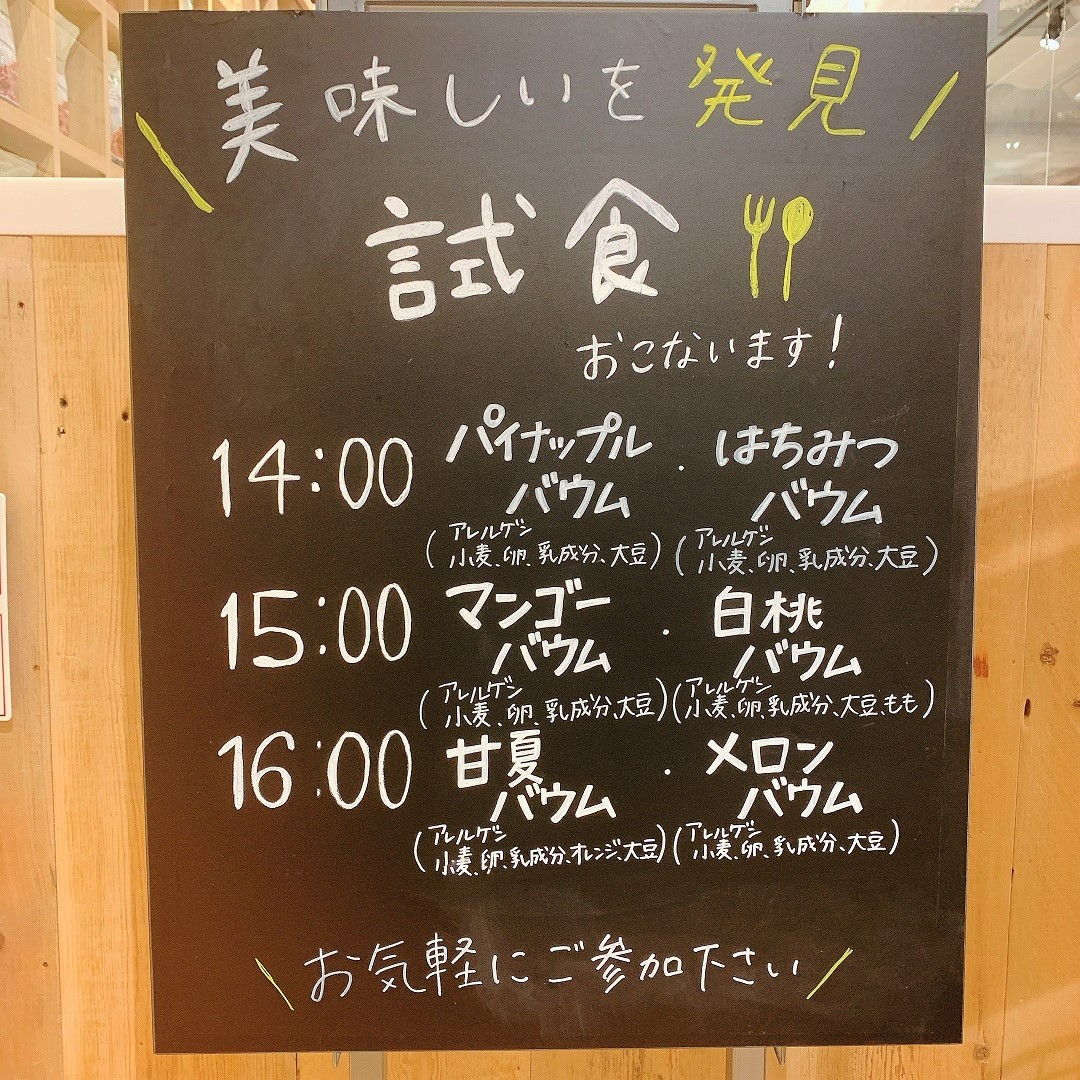 美味しいを発見
試食
おこないます!
14:00 パイナップル・はちみつ
バウム バウム
アレルゲン アレルゲン
(小麦、卵、乳成分、大豆) (小麦、卵、乳成分、大豆)
15:00 マンゴー・白桃
バウム バウム
アレルゲン アレルゲン
(小麦、卵、乳成分、大豆) (小麦、卵、乳成分、大豆、もも)
16:00 甘夏・メロン
バウム バウム
アレルゲン アレルゲン
(小麦、卵、乳成分、オレンジ、大豆) (小麦、卵、乳成分、大豆)
お気軽にご参加下さい